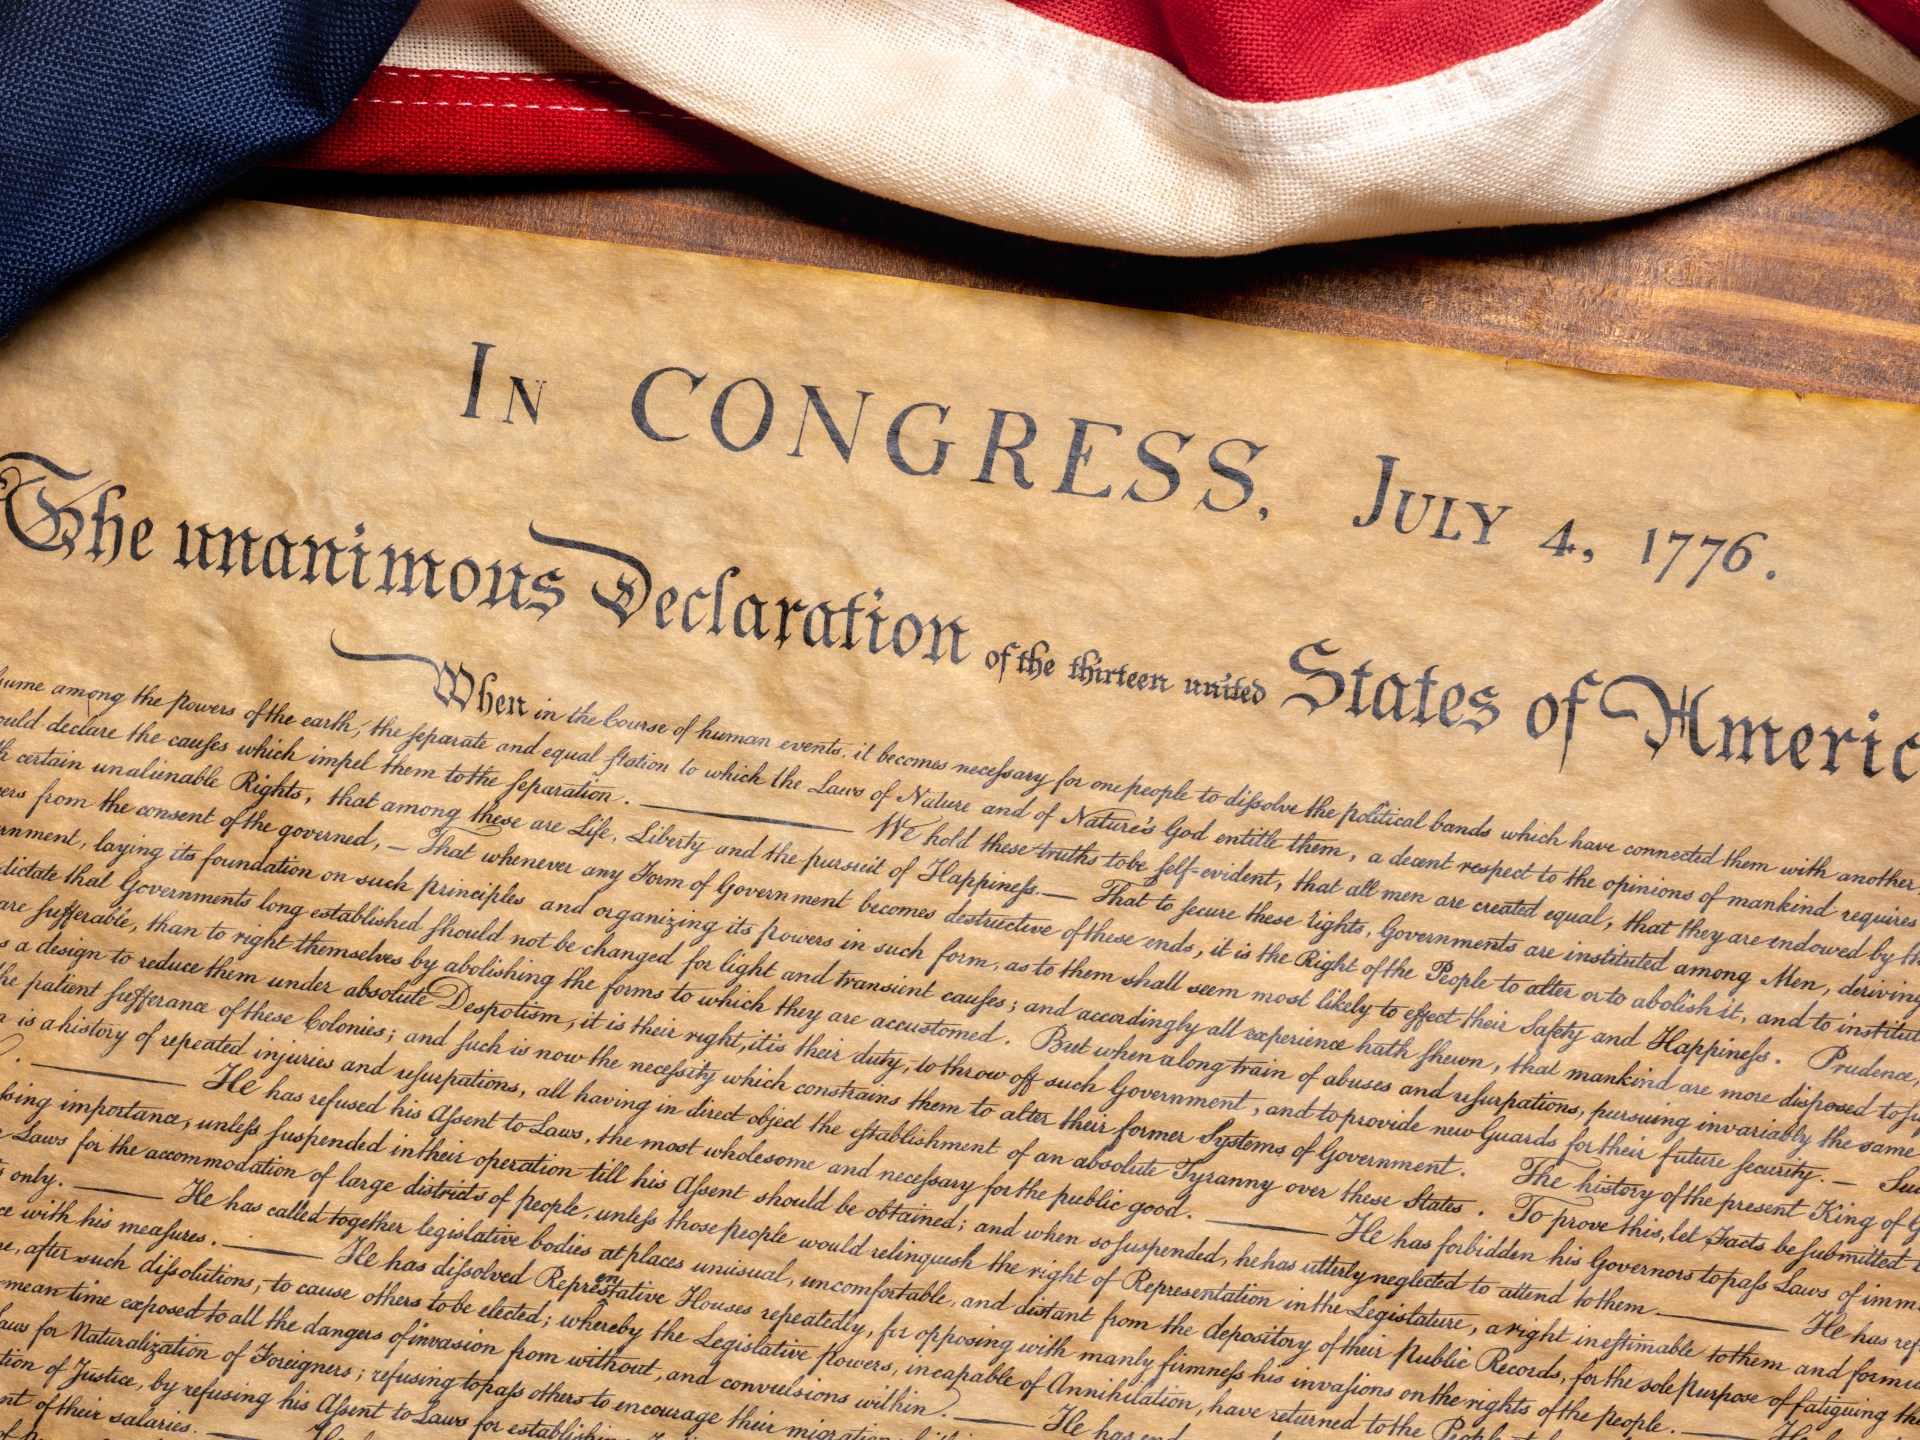 In CONGRESS, July 4, 1776.
The unanimous Declaration of the thirteen united States of Americ
When in the Course of human events, it becomes necessary for one people to dissolve the political bands which have connected them with another,
sume among the powers of the earth, the separate and equal station to which the Laws of Nature and of Nature's God entitle them, a decent respect to the opinions of mankind requires
ould declare the causes which impel them to the separation. —— We hold these truths to be self-evident, that all men are created equal, that they are endowed by th
th certain unalienable Rights, that among these are Life, Liberty and the pursuit of Happiness. — That to secure these rights, Governments are instituted among Men, deriving
ers from the consent of the governed, — That whenever any Form of Government becomes destructive of these ends, it is the Right of the People to alter or to abolish it, and to institut
rnment, laying its foundation on such principles and organizing its powers in such form, as to them shall seem most likely to effect their Safety and Happiness. Prudence,
dictate that Governments long established should not be changed for light and transient causes; and accordingly all experience hath shewn, that mankind are more disposed to suf
are sufferable, than to right themselves by abolishing the forms to which they are accustomed. But when a long train of abuses and usurpations, pursuing invariably the same
s a design to reduce them under absolute Despotism, it is their right, it is their duty, to throw off such Government, and to provide new Guards for their future security. — Suc
he patient sufferance of these Colonies; and such is now the necessity which constrains them to alter their former Systems of Government. The history of the present King of G
n is a history of repeated injuries and usurpations, all having in direct object the establishment of an absolute Tyranny over these States. To prove this, let Facts be submitted t
. —— He has refused his Assent to Laws, the most wholesome and necessary for the public good. —— He has forbidden his Governors to pass Laws of imm
ssing importance, unless suspended in their operation till his Assent should be obtained; and when so suspended, he has utterly neglected to attend to them. —— He has ref
Laws for the accommodation of large districts of people, unless those people would relinquish the right of Representation in the Legislature, a right inestimable to them and formi
s only. —— He has called together legislative bodies at places unusual, uncomfortable, and distant from the depository of their public Records, for the sole purpose of fatiguing the
ce with his measures. —— He has dissolved Representative Houses repeatedly, for opposing with manly firmness his invasions on the rights of the people. —— He
e, after such dissolutions, to cause others to be elected; whereby the Legislative powers, incapable of Annihilation, have returned to the People
mean time exposed to all the dangers of invasion from without, and convulsions within. —— He has end
aws for Naturalization of Foreigners; refusing to pass others to encourage their migration
tion of Justice, by refusing his Assent to Laws for establish
nt of their salaries. ——